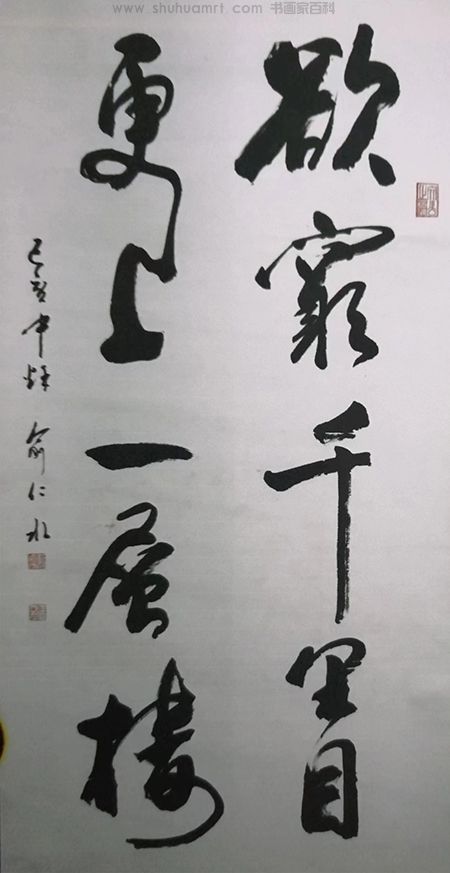 www.shuhuamrt.com 书画家百科
欲窮千里目
更上一層樓
己亥中秋 俞仁水